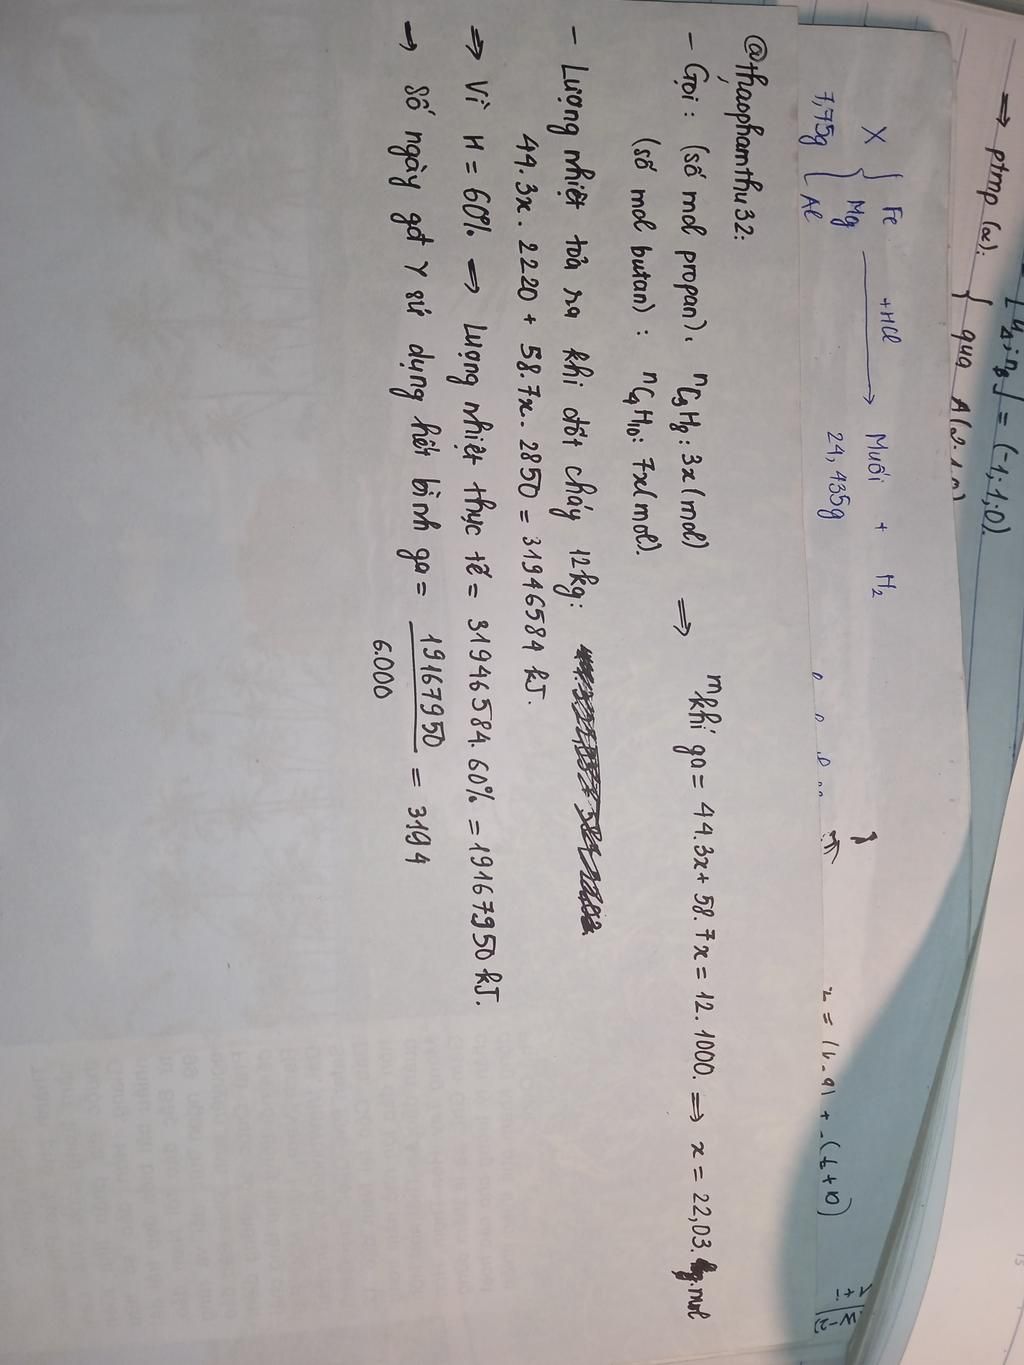 ⇒ ptmp (α): { qua A(2.1.0)
= (-1; 1; 0).
X { Fe Mg Al +HCl → Muối + H₂
7,75g 24,435g
@thaophamthu32:
- Gọi: (số mol propan). nC₃H₈: 3x (mol) ⇒ mkhí ga = 44.3x + 58.7x = 12.1000. ⇒ x = 22,03. mol
(số mol butan): nC₄H₁₀: 7x (mol).
- Lượng nhiệt tỏa ra khi đốt cháy 12kg:
44.3x.2220 + 58.7x.2850 = 31946584 kJ.
⇒ Vì H = 60% ⇒ Lượng nhiệt thực tế = 31946584.60% = 19167950 kJ.
→ Số ngày gđ Y sử dụng hết bình ga = 19167950 / 6.000 = 3194